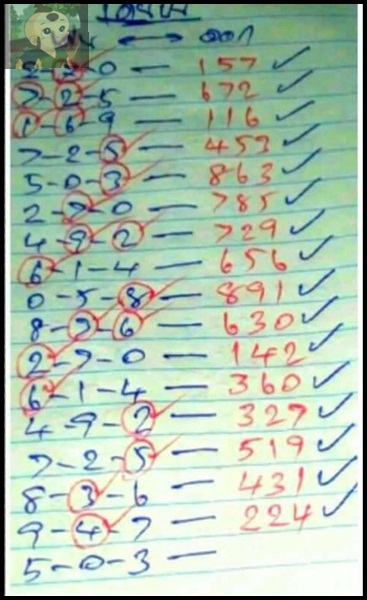 ออก
— 157 ✓
7-2-5 — 672 ✓
1-6-9 — 116 ✓
7-2-5 — 453 ✓
5-0-3 — 863 ✓
2-7-0 — 785 ✓
4-9-2 — 729 ✓
6-1-4 — 656 ✓
0-5-8 — 891 ✓
8-3-6 — 630 ✓
2-7-0 — 142 ✓
6-1-4 — 360 ✓
4-9-2 — 327 ✓
7-2-5 — 519 ✓
8-3-6 — 431 ✓
9-4-7 — 224 ✓
5-0-3 —